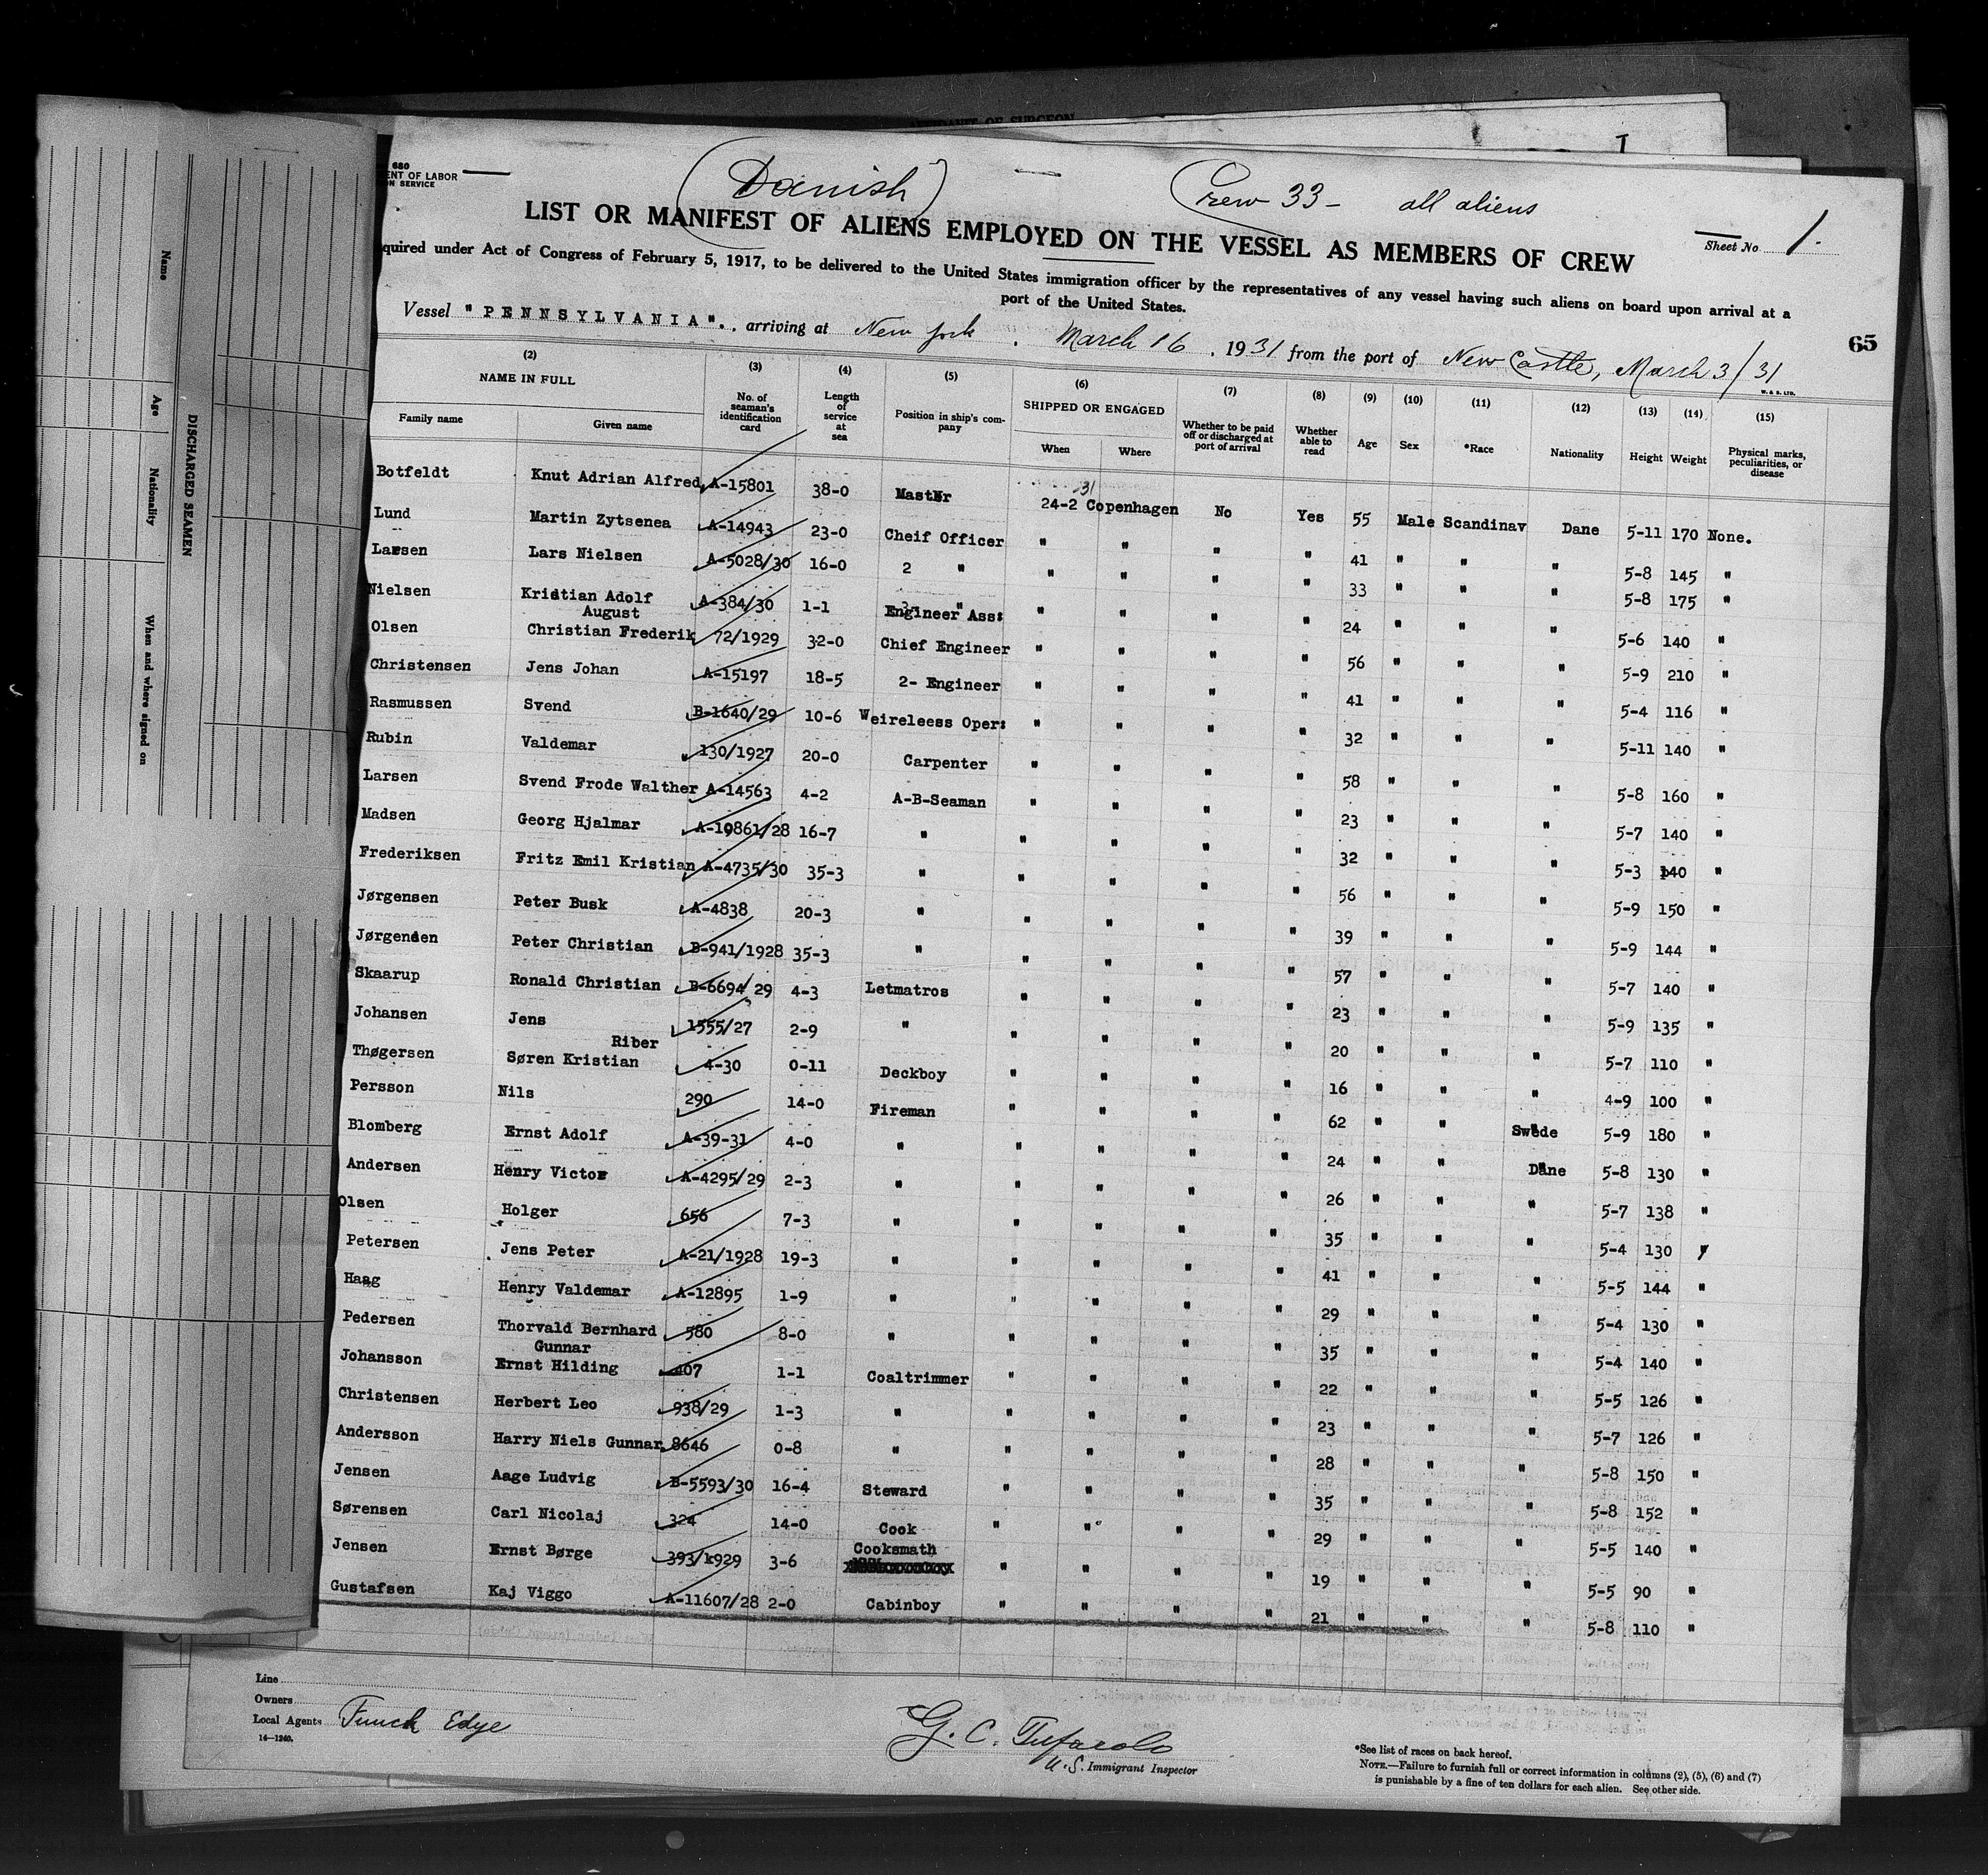 AFFIDAVIT OF SURGEON
680
ENT OF LABOR
ON SERVICE
(Danish)
Crew 33 - all aliens
LIST OR MANIFEST OF ALIENS EMPLOYED ON THE VESSEL AS MEMBERS OF CREW
Sheet No. 1.
quired under Act of Congress of February 5, 1917, to be delivered to the United States immigration officer by the representatives of any vessel having such aliens on board upon arrival at a
port of the United States.
65
Vessel "PENNSYLVANIA". , arriving at New York , March 16 , 1931 from the port of New Castle, March 3/31
W. & S. LTD.
(2) (3) (4) (5) (6) (7) (8) (9) (10) (11) (12) (13) (14) (15)
NAME IN FULL
Family name
Given name
No. of seaman's identification card
Length of service at sea
Position in ship's company
SHIPPED OR ENGAGED
When
Where
Whether to be paid off or discharged at port of arrival
Whether able to read
Age
Sex
*Race
Nationality
Height
Weight
Physical marks, peculiarities, or disease
31
Botfeldt Knut Adrian Alfred A-15801 38-0 Master 24-2 Copenhagen No Yes 55 Male Scandinav Dane 5-11 170 None.
Lund Martin Zytsenea A-14943 23-0 Cheif Officer " " " " 41 " " " 5-8 145 "
Larsen Lars Nielsen A-5028/30 16-0 2 " " " " " 33 " " " 5-8 175 "
Nielsen Kristian Adolf August A-384/30 1-1 Engineer Ass: " " " " 24 " " " 5-6 140 "
Olsen Christian Frederik 72/1929 32-0 Chief Engineer " " " " 56 " " " 5-9 210 "
Christensen Jens Johan A-15197 18-5 2- Engineer " " " " 41 " " " 5-4 116 "
Rasmussen Svend B-1640/29 10-6 Weireleess Oper: " " " " 32 " " " 5-11 140 "
Rubin Valdemar 130/1927 20-0 Carpenter " " " " 58 " " " 5-8 160 "
Larsen Svend Frode Walther A-14563 4-2 A-B-Seaman " " " " 23 " " " 5-7 140 "
Madsen Georg Hjalmar A-10861/28 16-7 " " " " " 32 " " " 5-3 140 "
Frederiksen Fritz Emil Kristian A-4735/30 35-3 " " " " " 56 " " " 5-9 150 "
Jørgensen Peter Busk A-4838 20-3 " " " " " 39 " " " 5-9 144 "
Jørgensen Peter Christian B-941/1928 35-3 " " " " " 57 " " " 5-7 140 "
Skaarup Ronald Christian B-6694/29 4-3 Letmatros " " " " 23 " " " 5-9 135 "
Johansen Jens 1555/27 2-9 " " " " " 20 " " " 5-7 110 "
Thøgersen Søren Kristian Riber 4-30 0-11 Deckboy " " " " 16 " " " 4-9 100 "
Persson Nils 290 14-0 Fireman " " " " 62 " " Swede 5-9 180 "
Blomberg Ernst Adolf A-39-31 4-0 " " " " " 24 " " Dane 5-8 130 "
Andersen Henry Victor A-4295/29 2-3 " " " " " 26 " " " 5-7 138 "
Olsen Holger 656 7-3 " " " " " 35 " " " 5-4 130 "
Petersen Jens Peter A-21/1928 19-3 " " " " " 41 " " " 5-5 144 "
Haag Henry Valdemar A-12895 1-9 " " " " " 29 " " " 5-4 130 "
Pedersen Thorvald Bernhard Gunnar 580 8-0 " " " " " 35 " " " 5-4 140 "
Johansson Ernst Hilding 407 1-1 Coaltrimmer " " " " 22 " " " 5-5 126 "
Christensen Herbert Leo 938/29 1-3 " " " " " 23 " " " 5-7 126 "
Andersson Harry Niels Gunnar 8646 0-8 " " " " " 28 " " " 5-8 150 "
Jensen Aage Ludvig B-5593/30 16-4 Steward " " " " 35 " " " 5-8 152 "
Sørensen Carl Nicolaj 324 14-0 Cook " " " " 29 " " " 5-5 140 "
Jensen Ernst Børge 393/1929 3-6 Cooksmath " " " " 19 " " " 5-5 90 "
Gustafsen Kaj Viggo A-11607/28 2-0 Cabinboy " " " " 21 " " " 5-8 110 "
Line
Owners
Local Agents Funch Edye
14-1240.
G. C. Tufarolo
U.S. Immigrant Inspector
*See list of races on back hereof.
NOTE.—Failure to furnish full or correct information in columns (2), (5), (6) and (7)
is punishable by a fine of ten dollars for each alien. See other side.
DISCHARGED SEAMEN
Name
Age
Nationality
When and where signed on